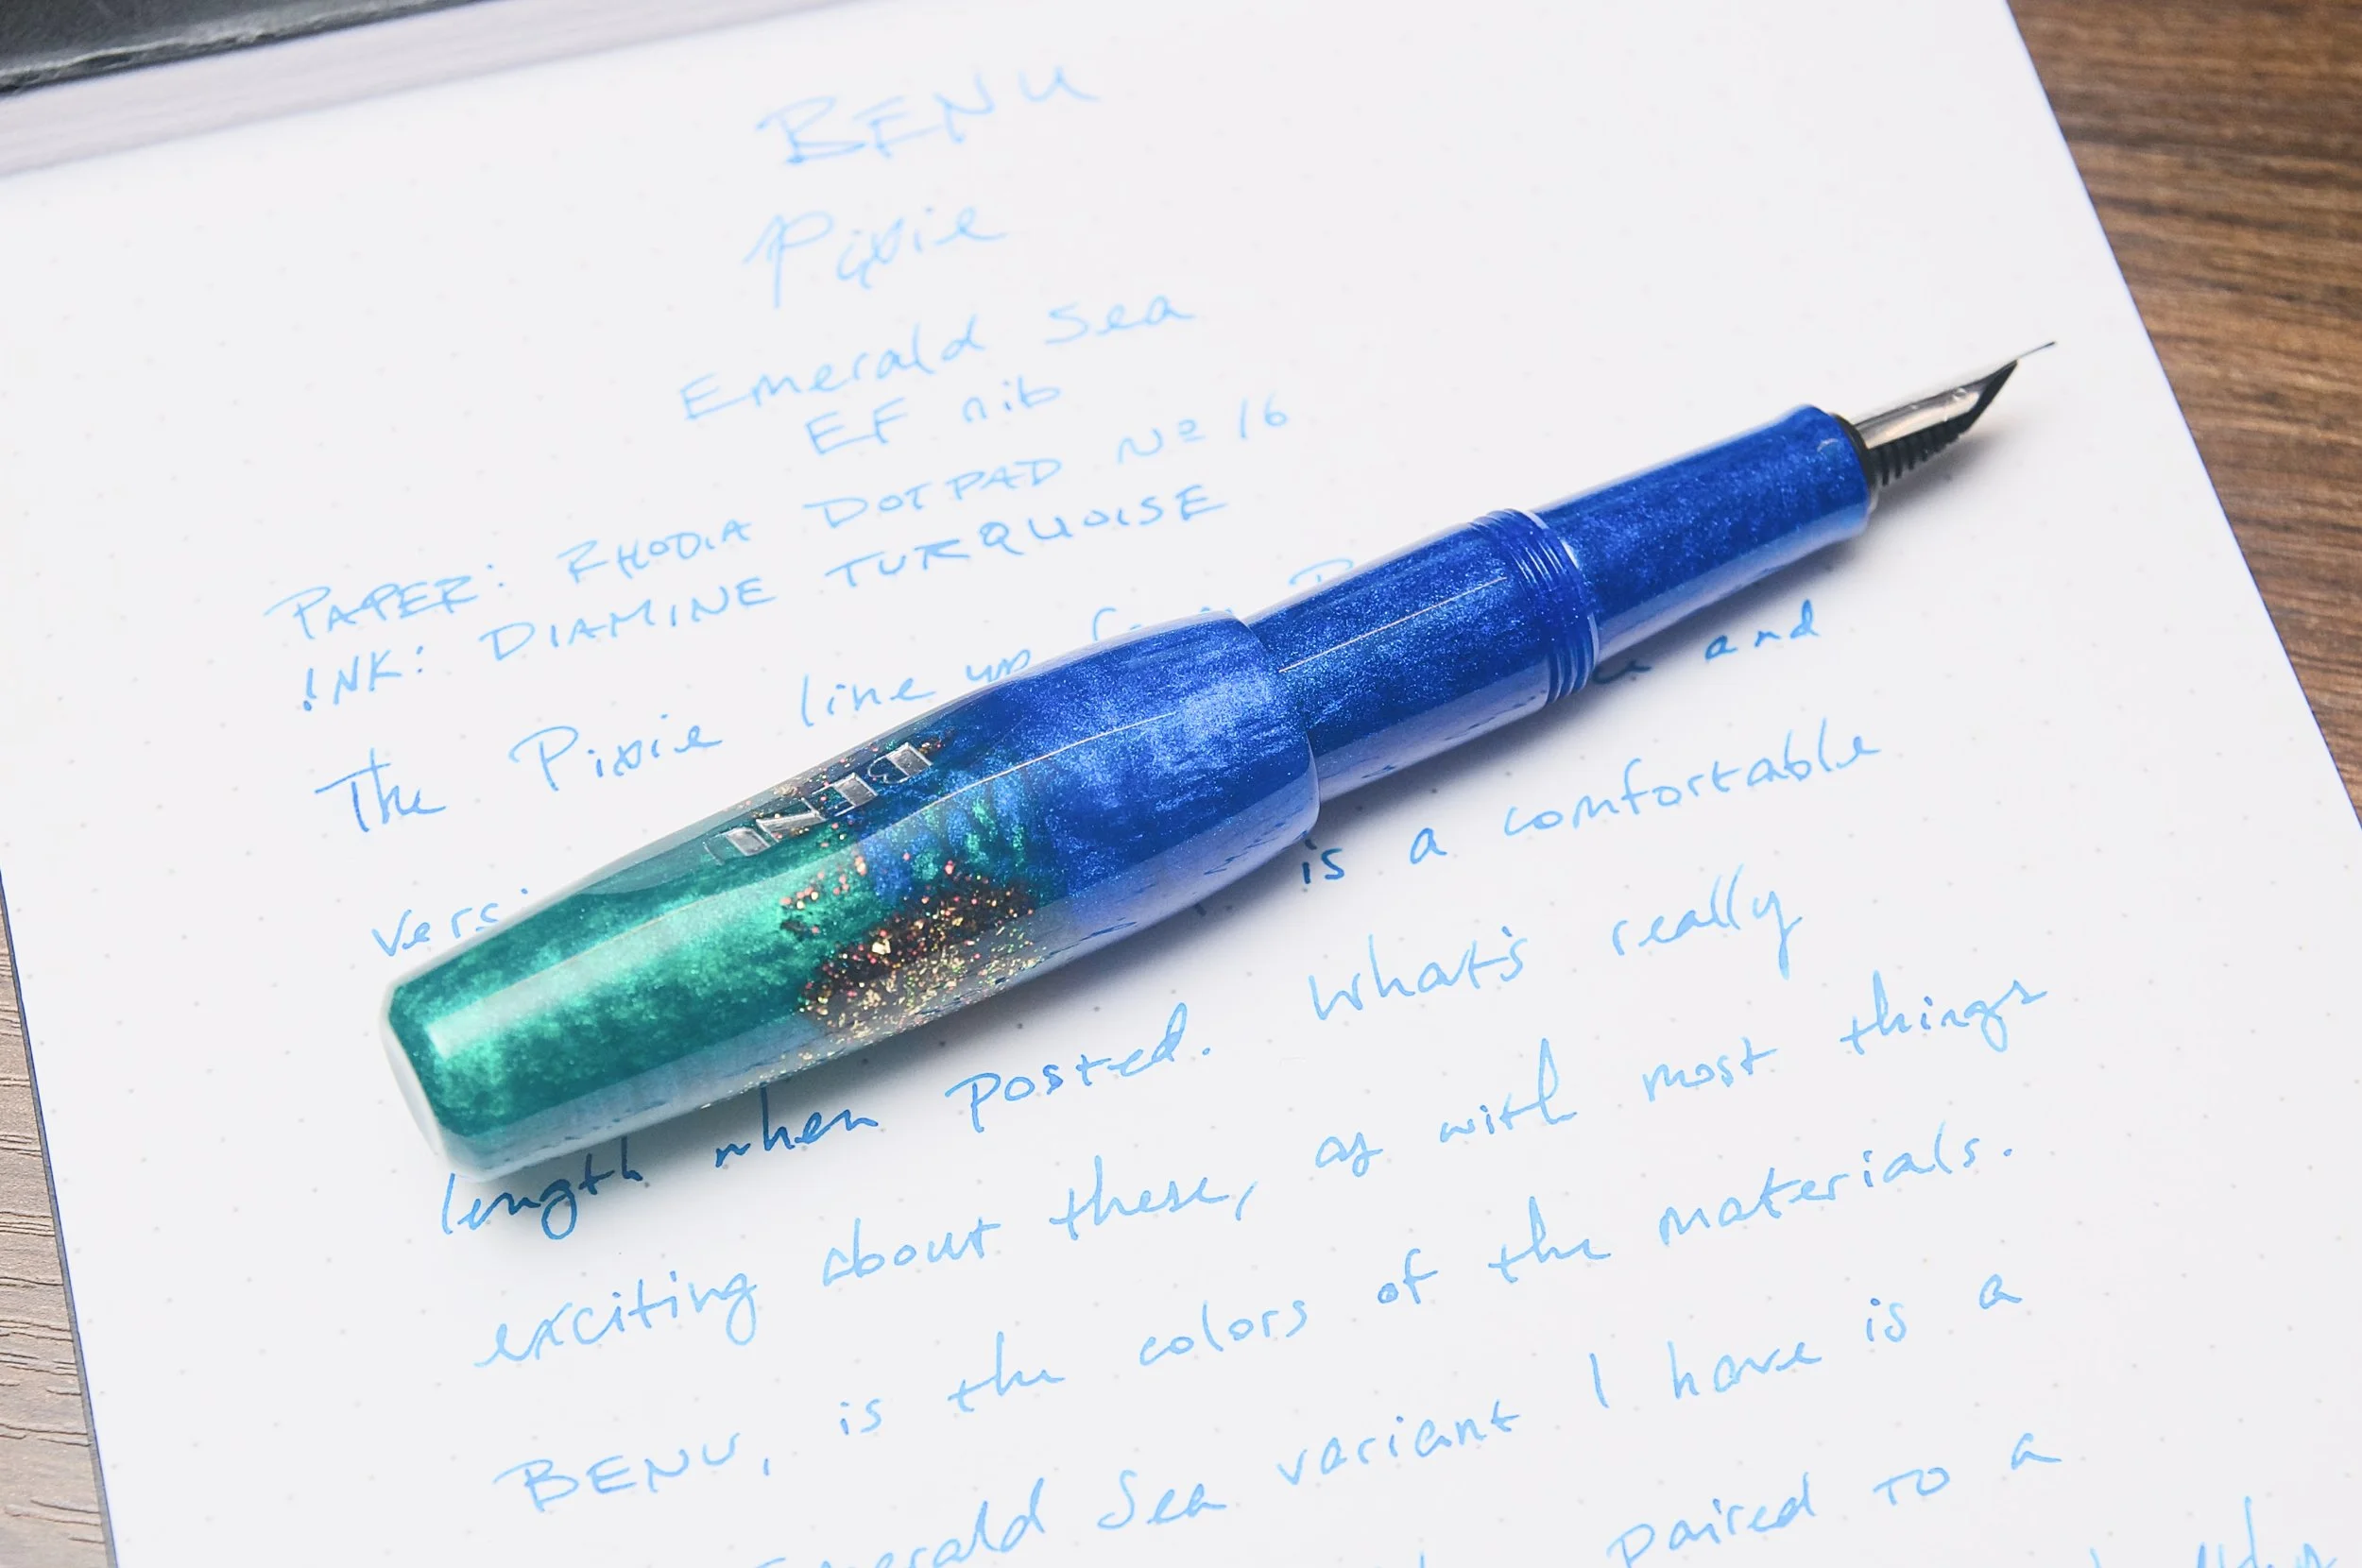 BENU
Pixie
Emerald Sea
EF nib
PAPER: RHODIA DOTPAD Nº 16
INK: DIAMINE TURQUOISE
The Pixie line up
and
is a comfortable
length when posted. What's really
exciting about these, as with most things
BENU, is the colors of the materials.
Sea variant I have is a
paired to a
BENU